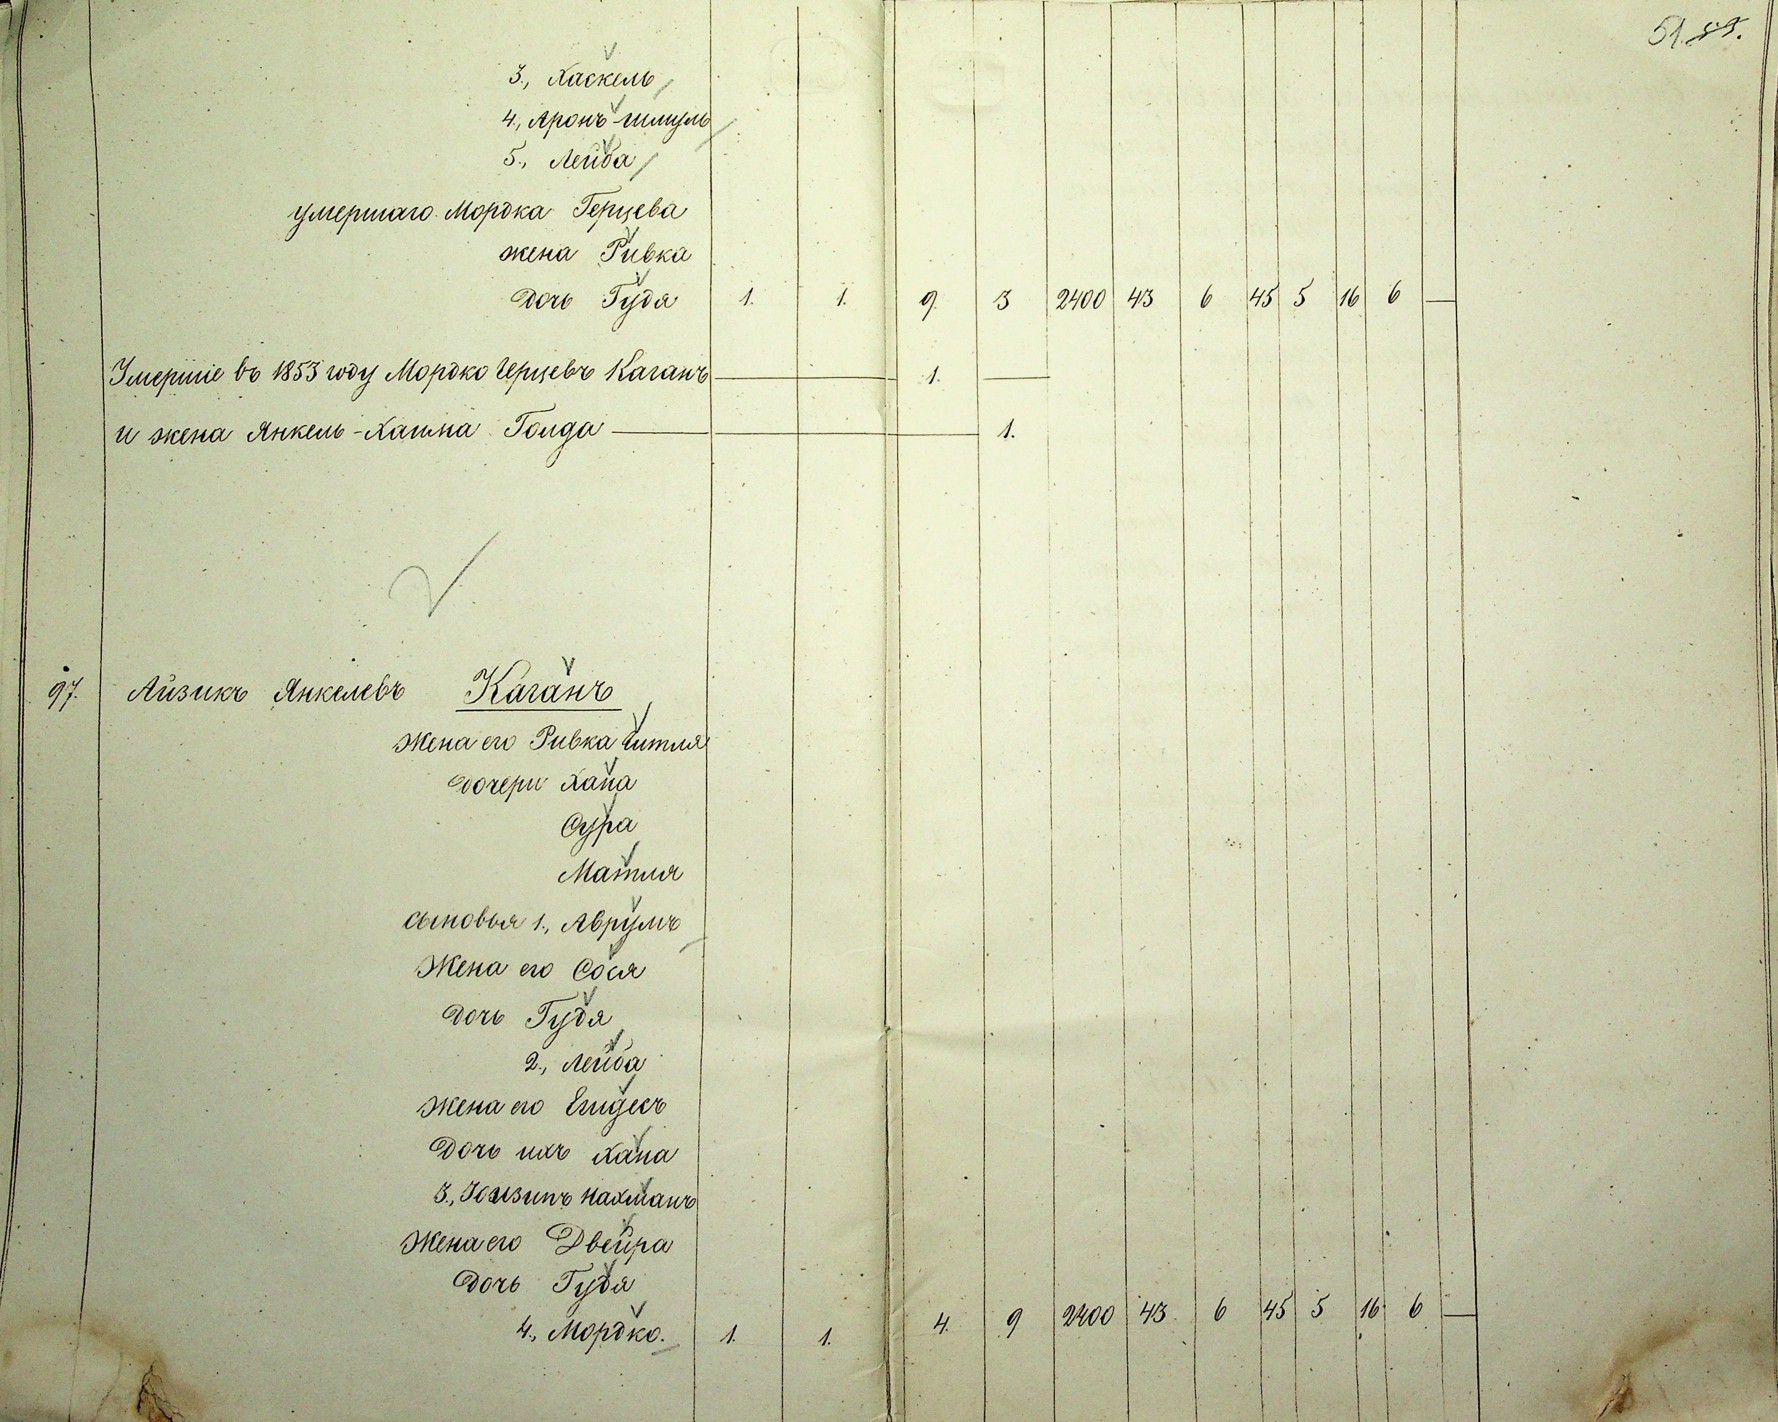 51.
3., Хаскель
4., Аронъ-Шмуль
5., Лейба
умершаго Мордка Герцева
жена Ривка
дочь Гудя 1. 1. 9 3 2400 43 6 45 5 16 6 —
Умершіе въ 1853 году Мордко Герцевъ Каганъ — 1. —
и жена Янкель-Хаима Голда — 1.
97. Айзикъ Янкелевъ Каганъ
Жена его Ривка Гитля
дочери Хана
Сура
Матля
сыновья 1., Аврумъ
Жена его Сося
дочь Гудя
2., Лейба
Жена его
Дочь ихъ Хана
3., Нахманъ
Жена его Двейра
дочь Гудя
4., Мордко. 1. 1. 4. 9 2400 43 6 45 5 16 6 —